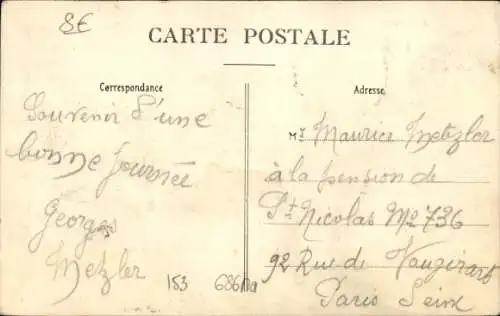 8€
CARTE POSTALE
Correspondance
Adresse
Souvenir d'une
bonne journée
Georges
Metzler
Mr Maurice Metzler
à la pension de
St Nicolas No 736
92 Rue de Vaugirard
Paris Seine
153
686